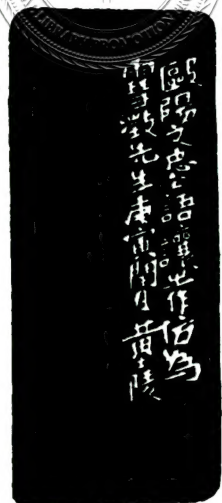 LIBRARY PROMOTION
歐陽文忠公語讓㞢作仿為
雪澂先生庚寅閏月黃士陵